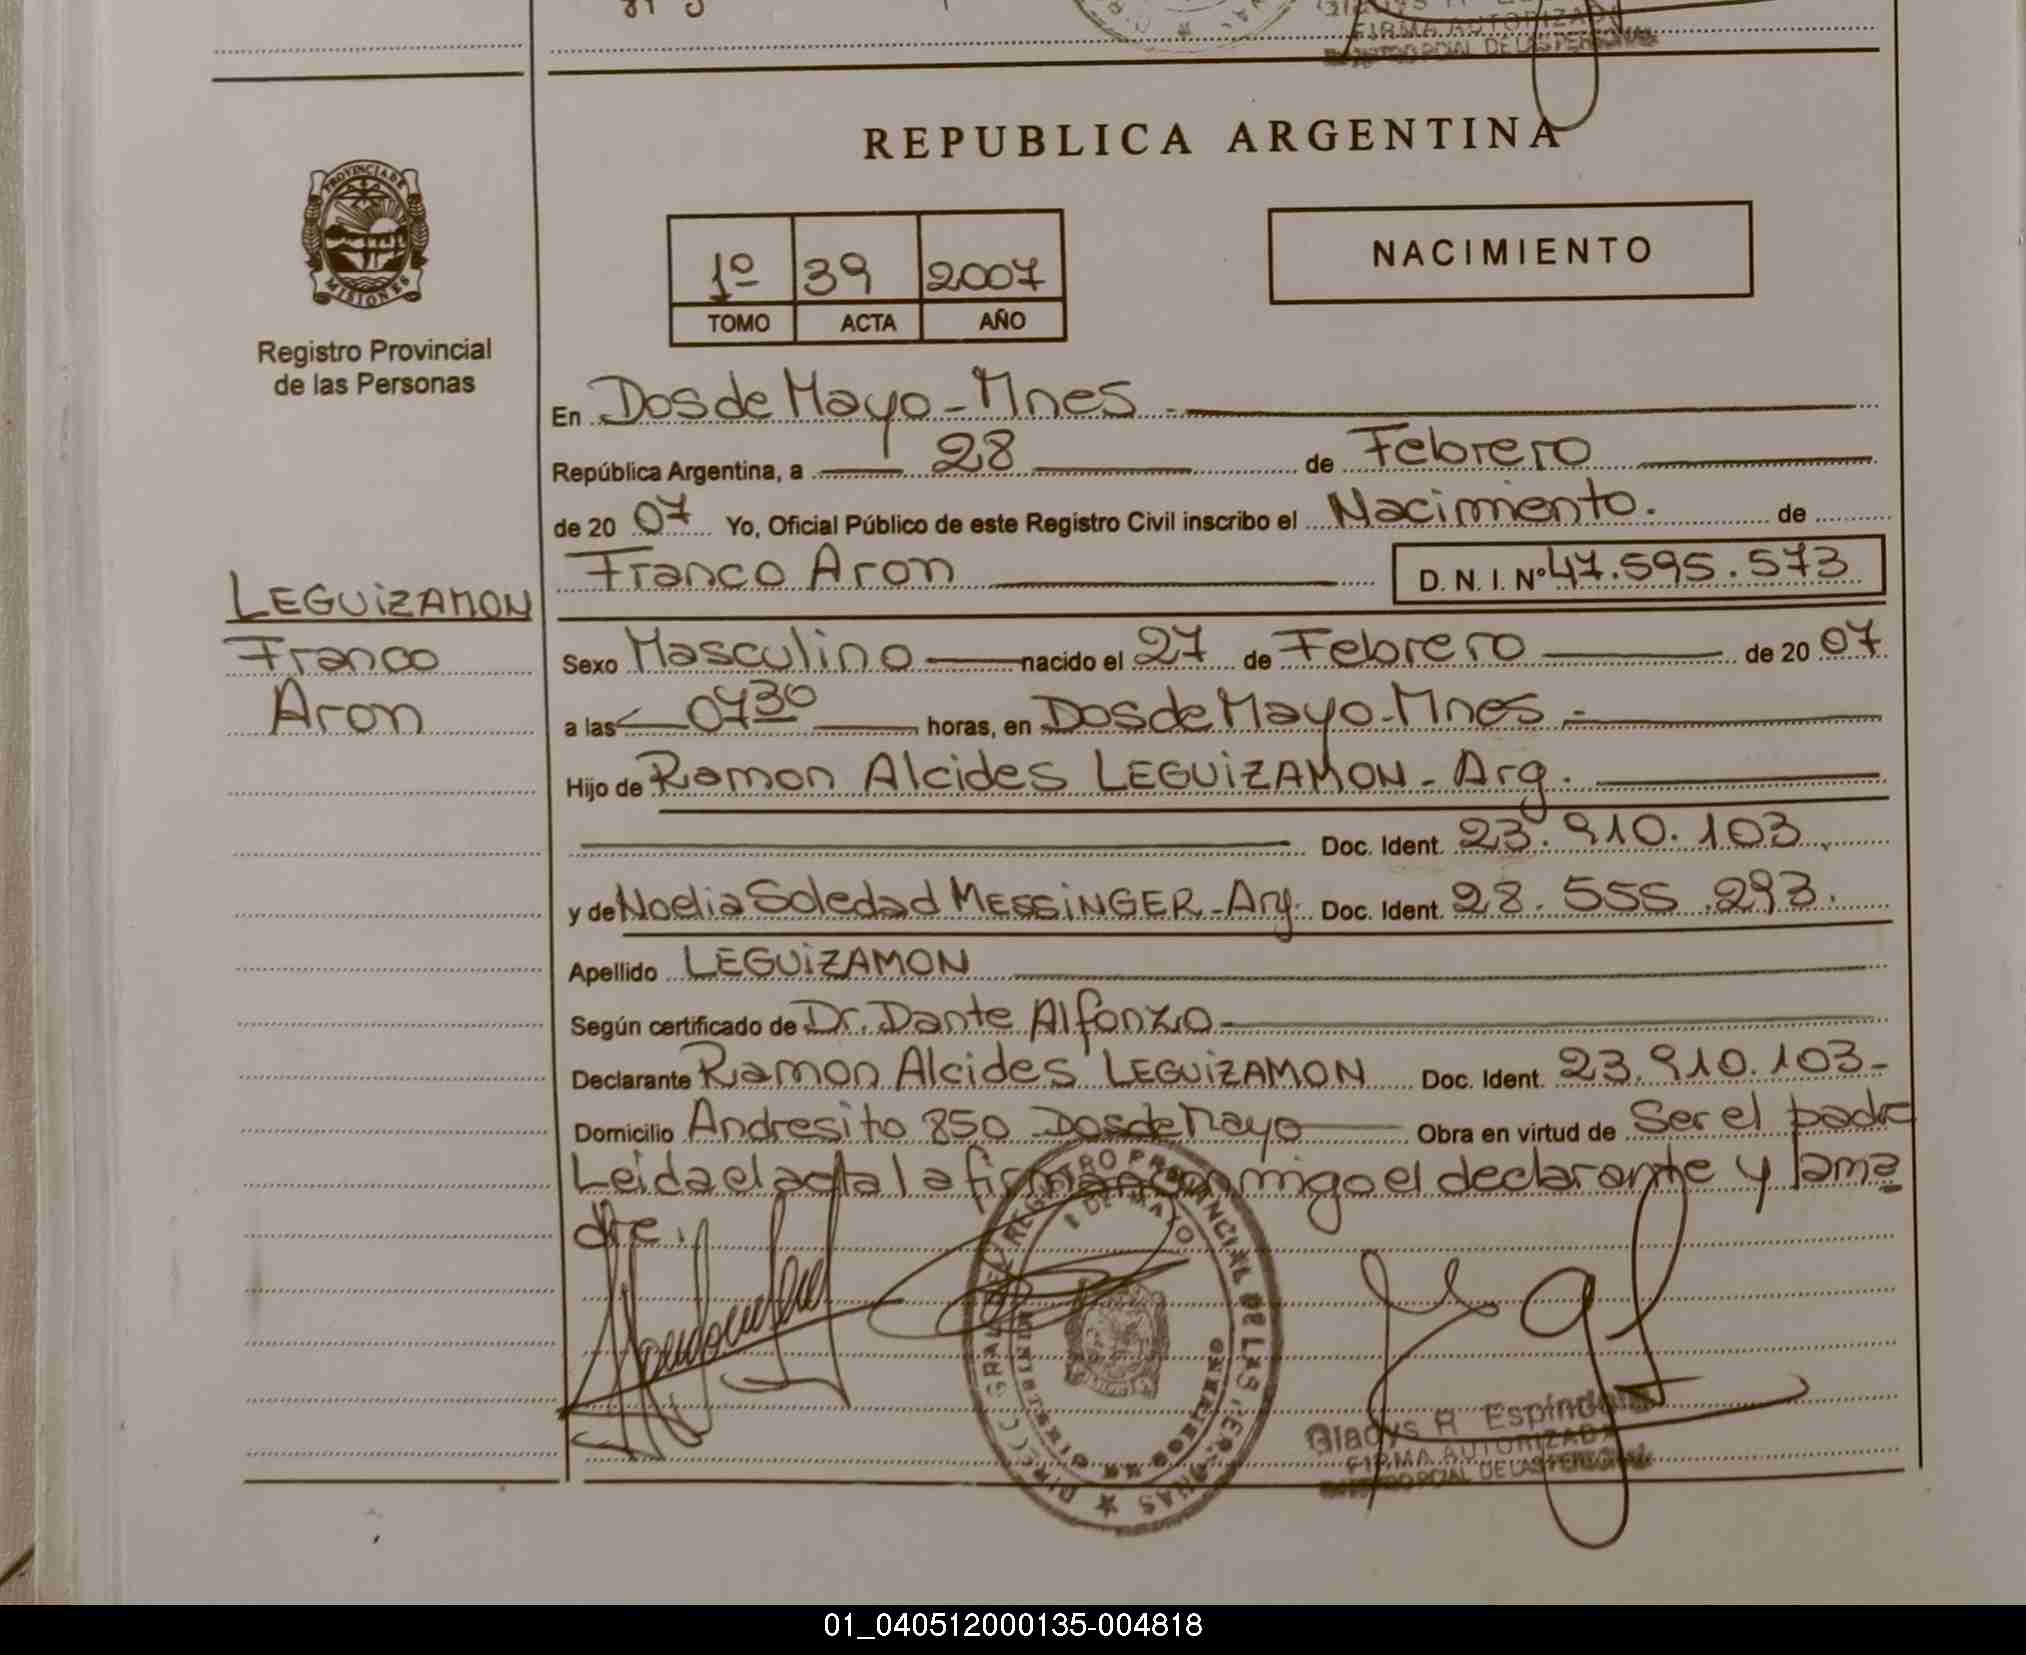 FIRMA AUTORIZADA
REPUBLICA ARGENTINA
PROVINCIA DE
MISIONES
Registro Provincial
de las Personas
1º 39 2007
TOMO ACTA AÑO
NACIMIENTO
En Dos de Mayo - Mnes -
República Argentina, a 28 de Febrero
de 20 07 Yo, Oficial Público de este Registro Civil inscribo el Nacimiento. de
Franco Aron D. N. I. Nº 47.595.573
LEGUiZAMON
Franco
Aron
Sexo Masculino nacido el 27 de Febrero de 20 07
a las 07 30 horas, en Dos de Mayo - Mnes -
Hijo de Ramon Alcides LEGUiZAMON - Arg.
Doc. Ident. 23.910.103
y de Noelia Soledad MESSiNGER - Arg. Doc. Ident. 28.555.293.
Apellido LEGUiZAMON
Según certificado de Dr. Dante Alfonzo
Declarante Ramon Alcides LEGUiZAMON Doc. Ident. 23.910.103-
Domicilio Andresito 850 Dos de Mayo Obra en virtud de Ser el padre
Leida el acta la firman conmigo el declarante y la ma
dre.
REGISTRO PROVINCIAL DE LAS PERSONAS
2 DE MAYO
MINISTERIO GOBIERNO
Gladys R Espindola
FIRMA AUTORIZADA
DE LAS PERSONAS
01_040512000135-004818